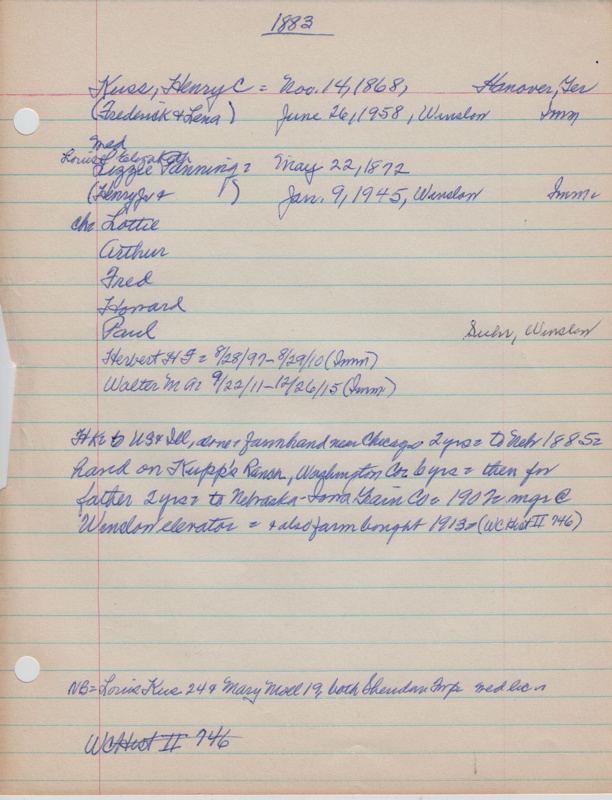 1883
Kuss, Henry C = Nov. 14, 1868, Hanover, Ger
(Frederick & Lena) June 26, 1958, Winslow Imm
med
Louise Elizabeth
Lizzie Panning = May 22, 1872
(Henry Jr & ) Jan. 9, 1945, Winslow Imm
ch = Lottie
Arthur
Fred
Howard
Paul Suhr, Winslow
Herbert H F = 8/28/97 - 8/29/10 (Imm)
Walter M A = 9/22/11 - 12/26/15 (Imm)
HK = to US & Ill, alone = farmhand near Chicago 2 yrs = to Nebr 1885 =
hand on Kupp's Ranch, Washington Co = 6 yrs = then for
father 2 yrs = to Nebraska-Iowa Grain Co = 1902 = mgr @
Winslow elevator = & also farm bought 1913 = (WC Hist II 746)
NB = Louis Kus 24 & Mary Moll 19, both Sheridan Twp med lic
WC Hist II 746